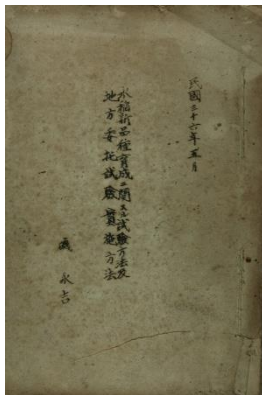 民國三十六年五月
水稻新品種育成ニ関スル試験方法及
地方委托試驗實施方法
磯永吉